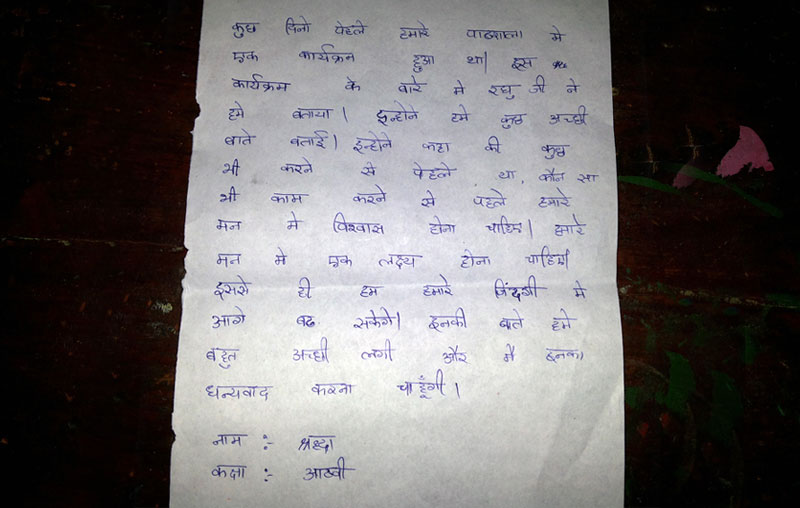 कुछ दिनो पेहले हमारे पाठशाला मे
एक कार्यक्रन हुआ था| इस
कार्यक्रम के बारे मे रघु जी ने
हमे बताया| इन्होने हमे कुछ अच्छी
बाते बताई| इन्होने कहा की कुछ
भी करने से पेहले या, कौन सा
भी काम करने से पहले हमारे
मन मे विश्वास होना चाहिए| हमारे
मन मे एक लक्ष्य होना चाहिए|
इससे ही हम हमारे जिंदगी मे
आगे बढ सकेगे| इनकी बाते हमे
बहुत अच्छी लगी और मै इनका
धन्यवाद करना चाहूँगी|
नाम :- श्रध्दा
कक्षा :- आठवी